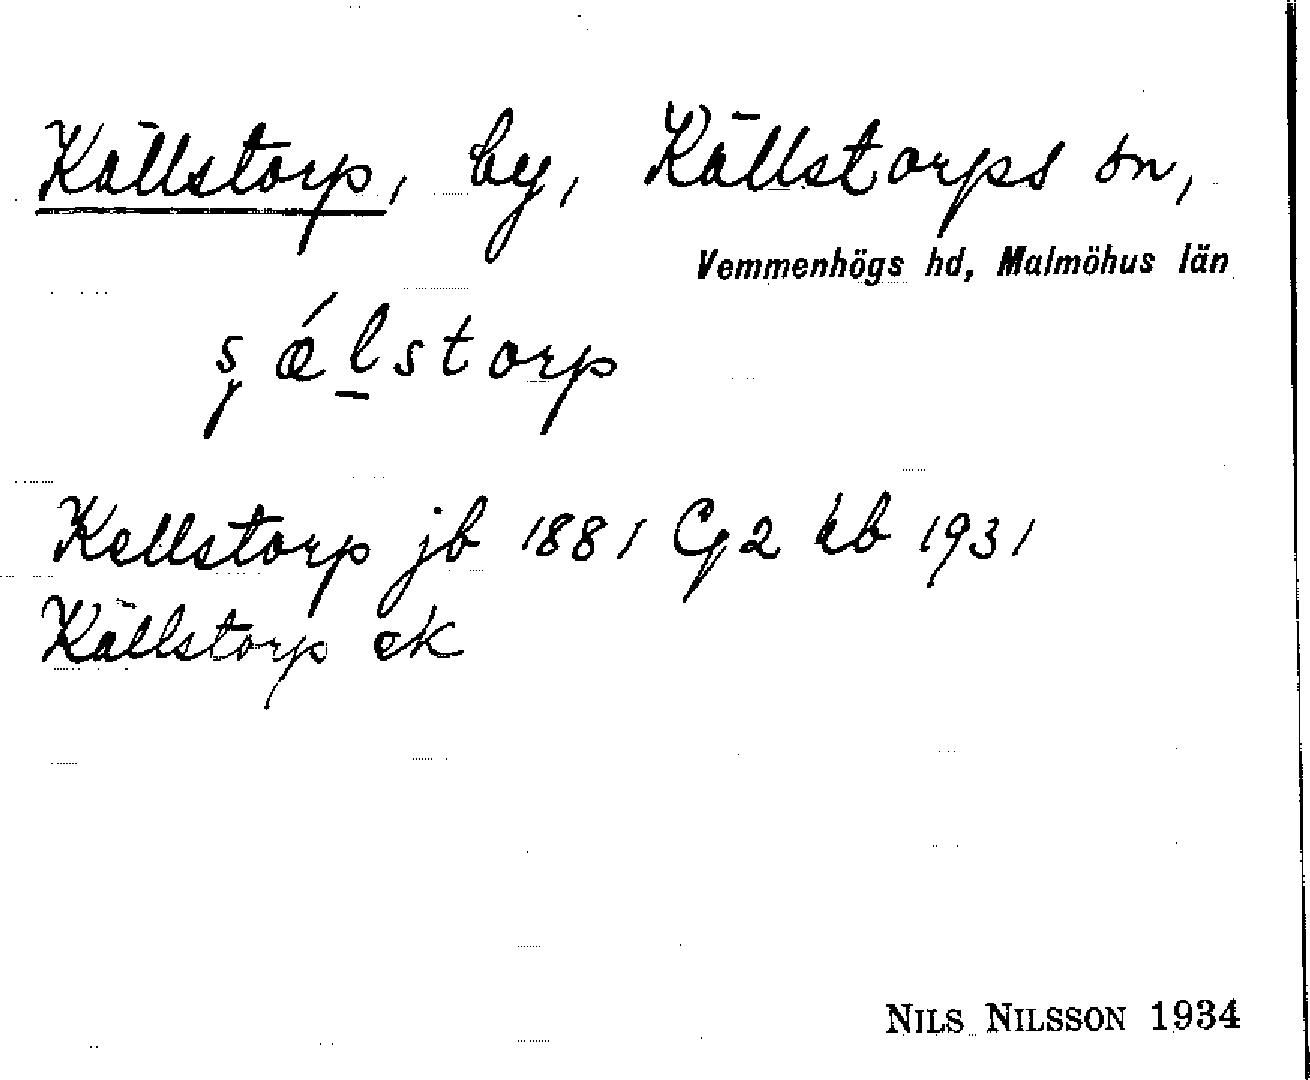 Källstorp, by, Källstorps sn,
Vemmenhögs hd, Malmöhus län
ʂǽlstorp
Kellstorp jb 1881 Cg2 kb 1931
Källstorp ek
NILS NILSSON 1934